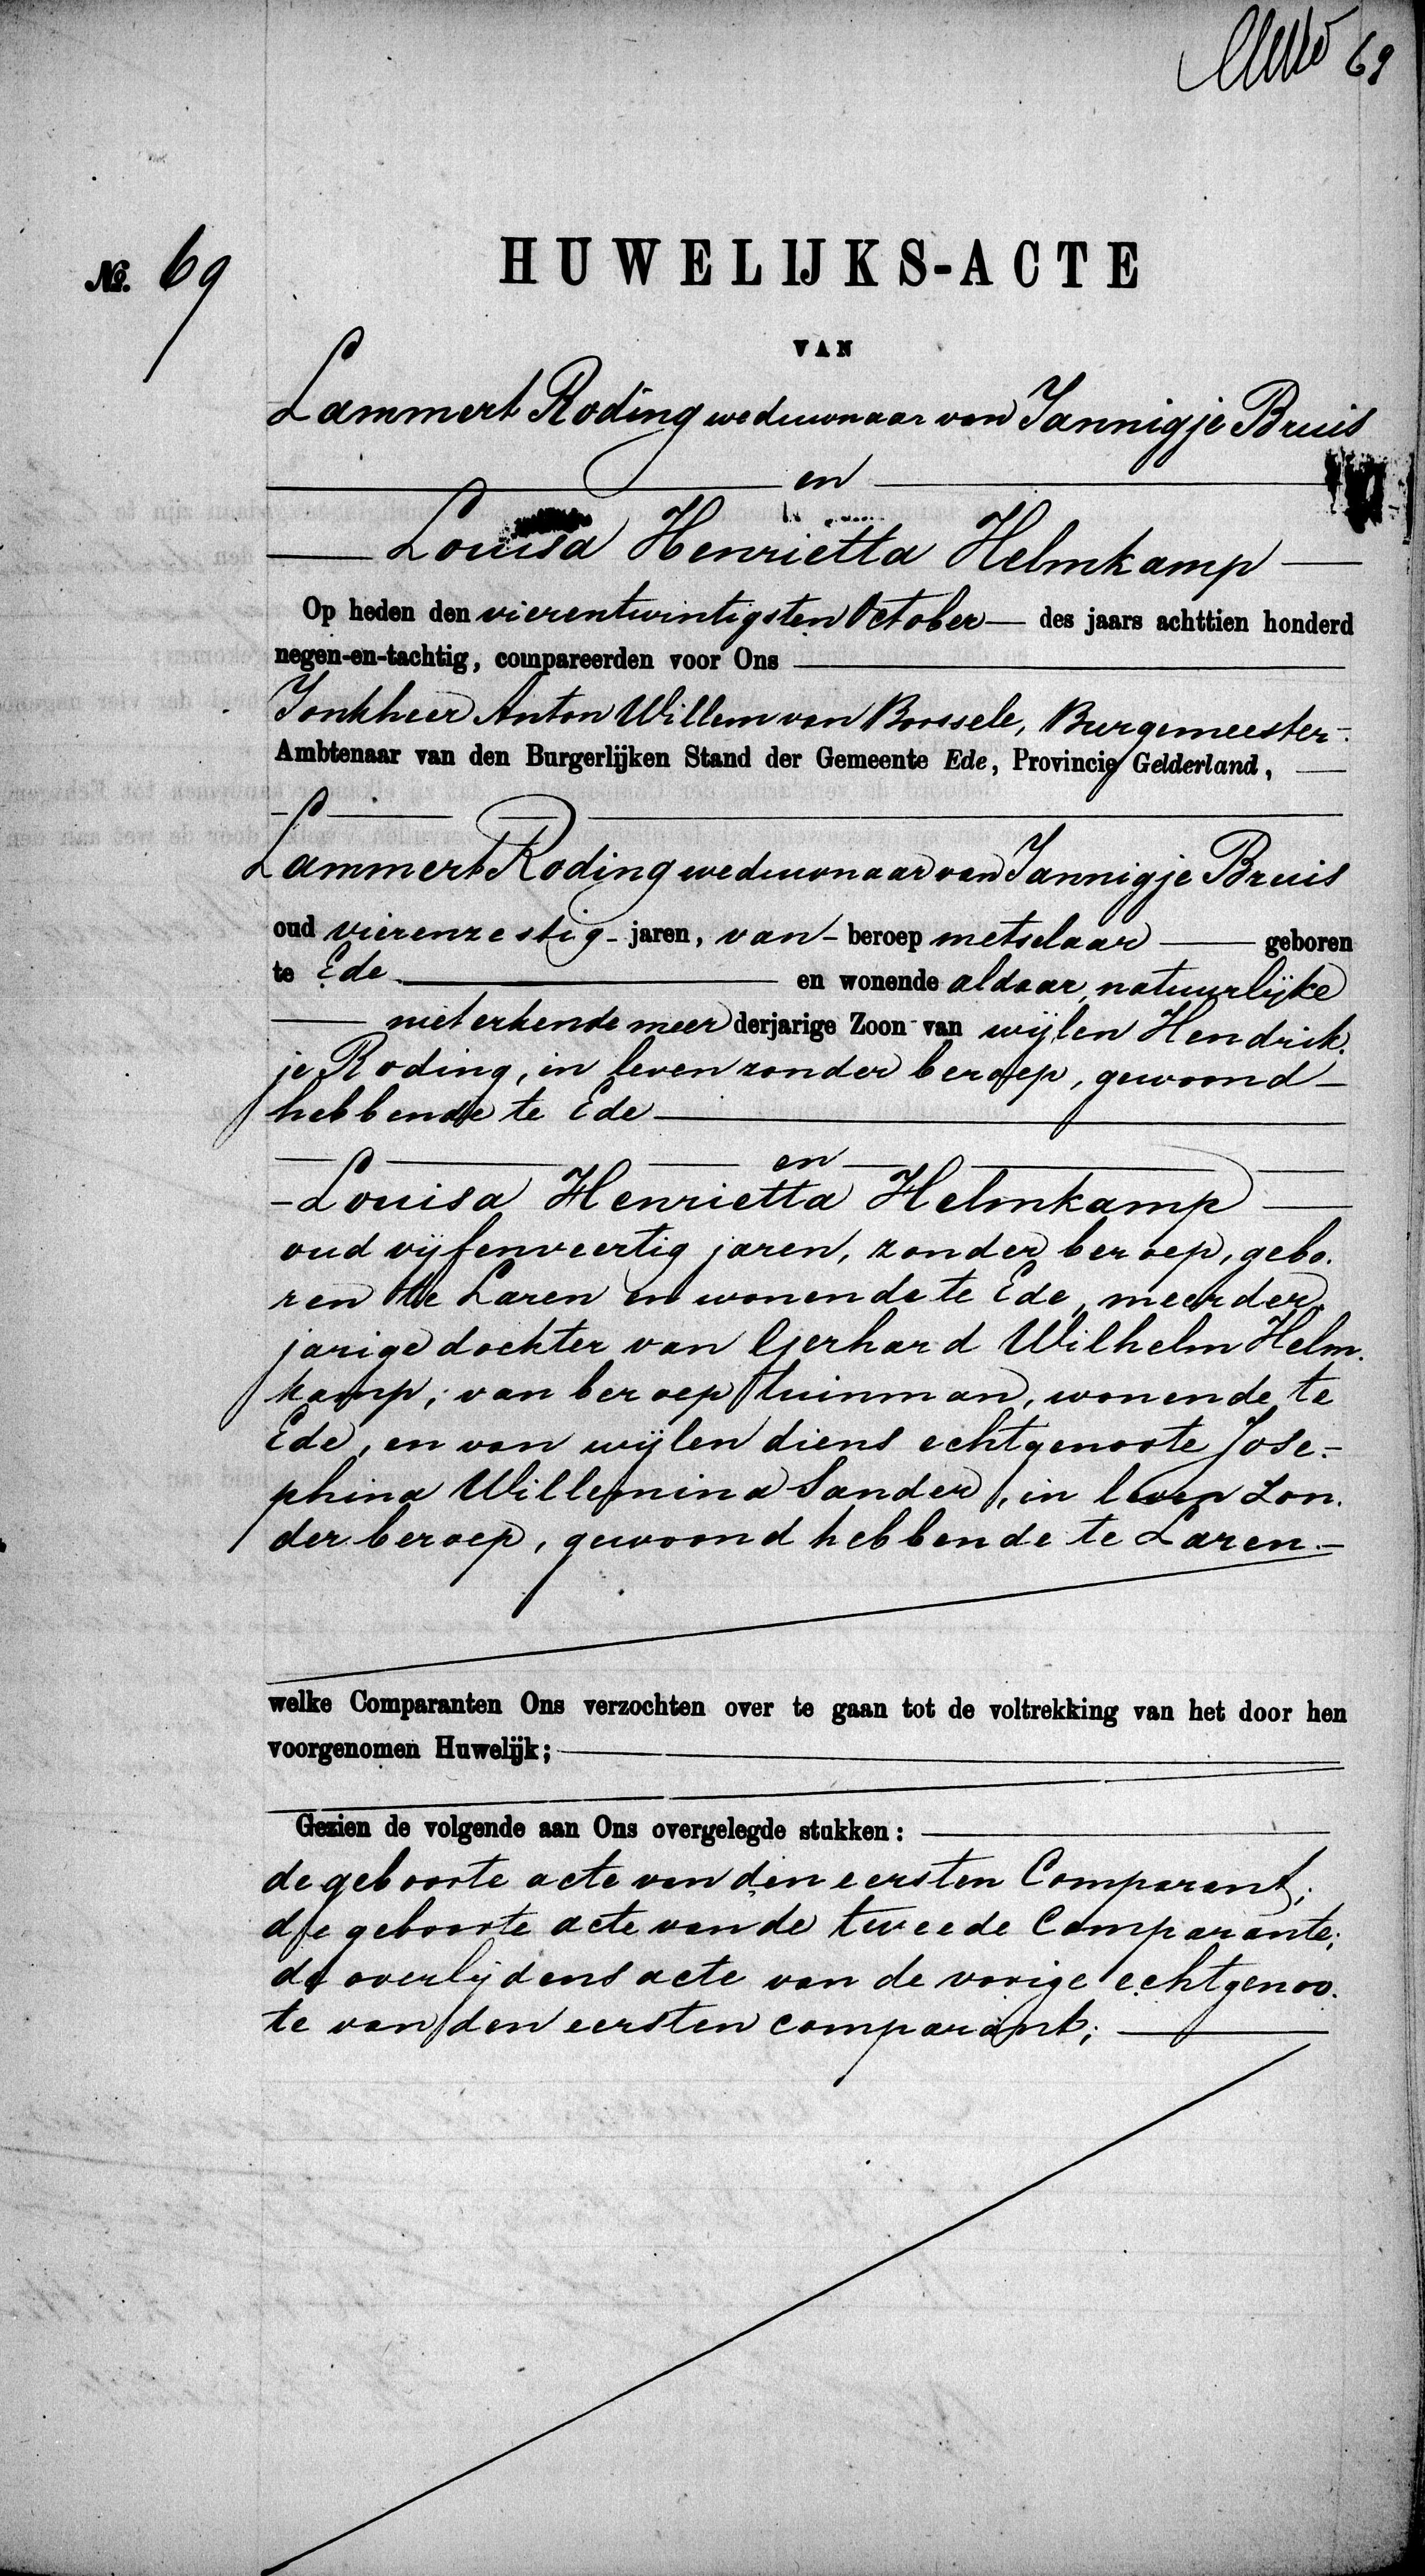 69
№. 69
HUWELIJKS-ACTE
VAN
Lammert Roding weduwnaar van Jannigje Bruis
en
Louisa Henrietta Helmkamp
Op heden den vierentwintigsten October des jaars achttien honderd
negen-en-tachtig, compareerden voor Ons
Jonkheer Anton Willem van Borssele, Burgemeester
Ambtenaar van den Burgerlijken Stand der Gemeente Ede, Provincie Gelderland,
Lammert Roding weduwnaar van Jannigje Bruis
oud vierenzestig jaren, van beroep metselaar geboren
te Ede en wonende aldaar, natuurlijke
niet erkende meerderjarige Zoon van wijlen Hendrik.
je Roding, in leven zonder beroep, gewoond
hebbende te Ede
en
Louisa Henrietta Helmkamp
oud vijfenveertig jaren, zonder beroep, gebo.
ren te Laren en wonende te Ede, meerder,
jarige dochter van Gerhard Wilhelm Helm.
kamp, van beroep tuinman, wonende te
Ede, en van wijlen diens echtgenoote Jose-
phina Willemina Sander, in leven zon.
der beroep, gewoond hebbende te Laren.
welke Comparanten Ons verzochten over te gaan tot de voltrekking van het door hen
voorgenomen Huwelijk;
Gezien de volgende aan Ons overgelegde stukken:
de geboorte acte van den eersten Comparant;
de geboorte acte van de tweede Comparante;
de overlijdens acte van de vorige echtgenoo.
te van den eersten comparant;